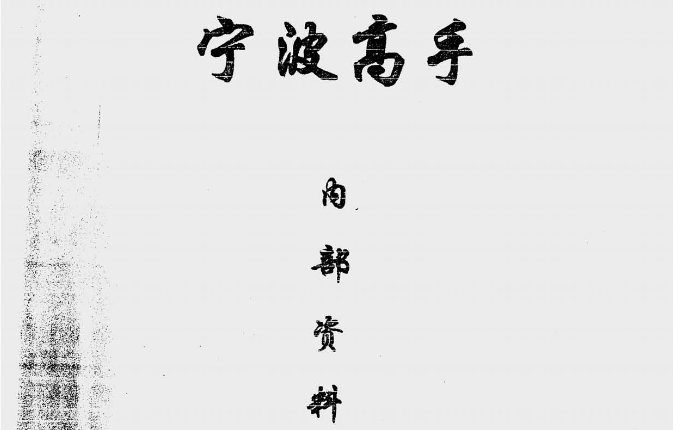 宁波高手
内部资料